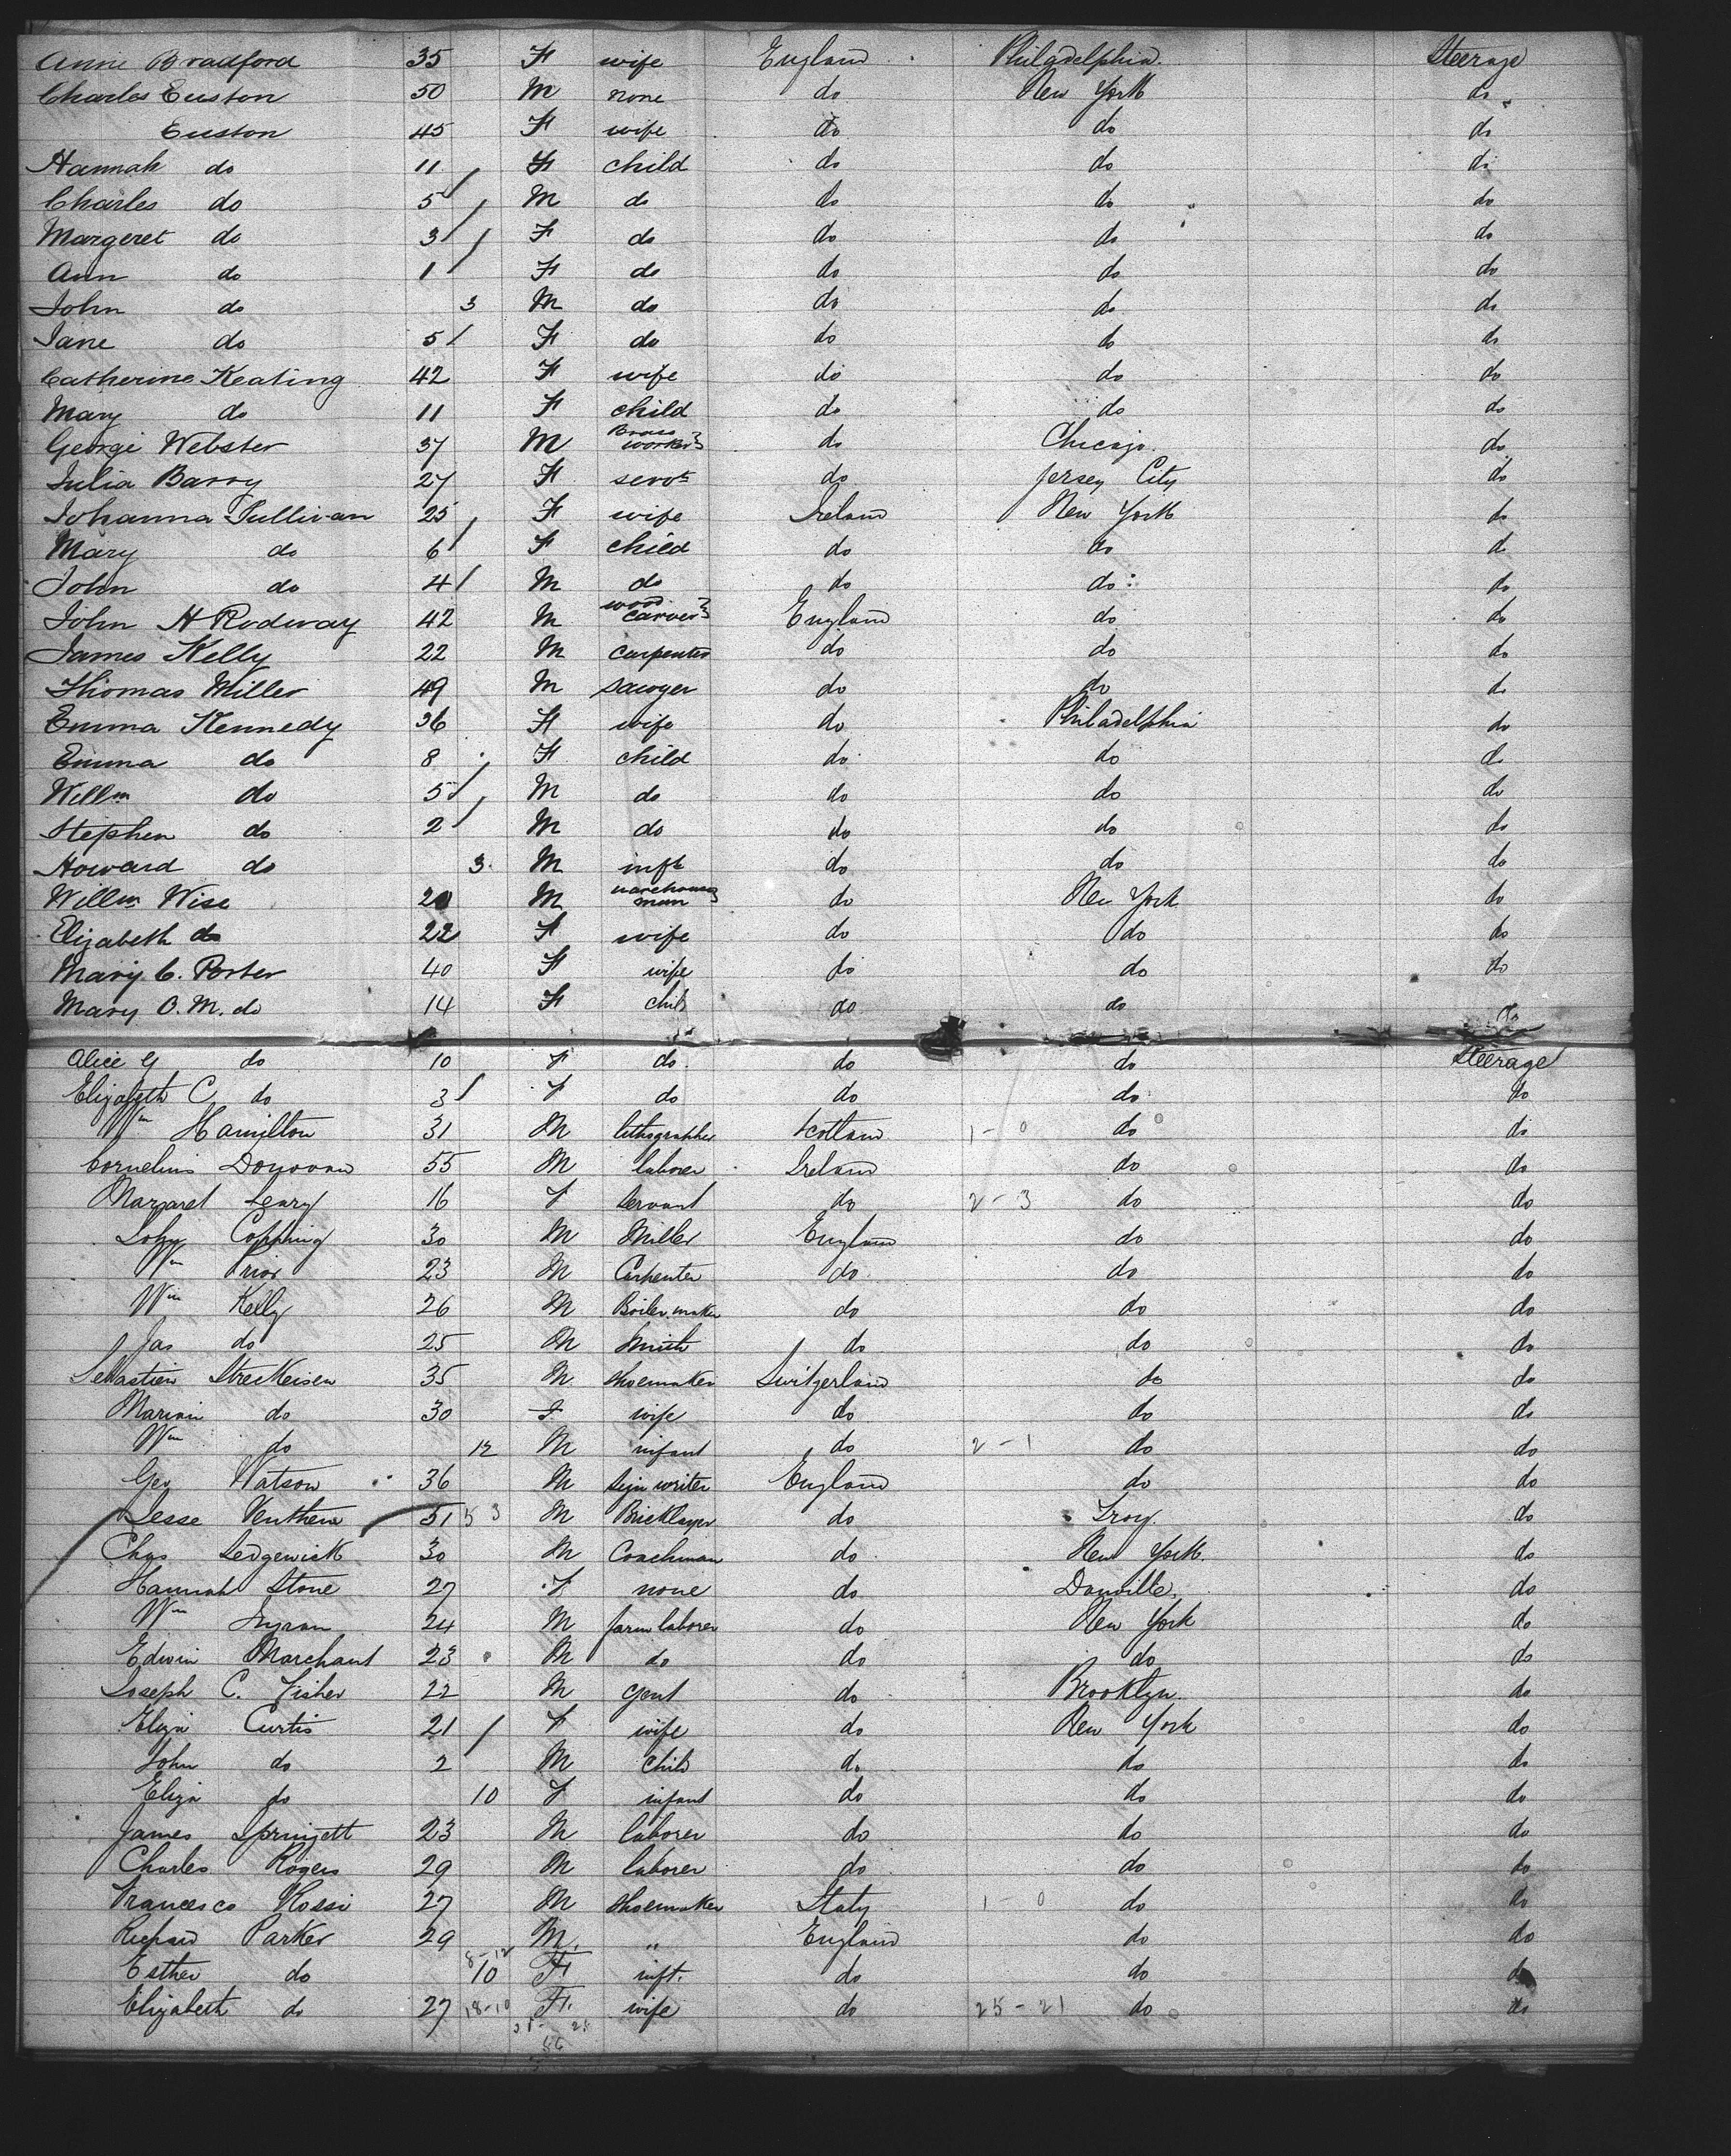 Anne Bradford 35 F wife England Philadelphia Steerage
Charles Euston 50 M none do New York do
Euston 45 F wife do do do
Hannah do 11 F child do do do
Charles do 5 M do do do do
Margeret do 3 F do do do do
Ann do 1 F do do do do
John do 3 M do do do do
Jane do 5 F do do do do
Catherine Keating 42 F wife do do do
Mary do 11 F child do do do
George Webster 37 M Brass worker do Chicago do
Julia Barry 27 F servt do Jersey City do
Johanna Sullivan 25 F wife Ireland New York do
Mary do 6 F child do do do
John do 4 M do do do do
John H Rodway 42 M wood carver England do do
James Kelly 22 M carpenter do do do
Thomas Miller 49 M sawyer do do do
Emma Kennedy 36 F wife do Philadelphia do
Emma do 8 F child do do do
Willm do 5 M do do do do
Stephen do 2 M do do do do
Howard do 3 M inft do do do
Willm Wise 20 M warehouse man do New York do
Elizabeth do 22 F wife do do do
Mary C. Porter 40 F wife do do do
Mary O. M. do 14 F child do do do
Alice G do 10 F do do do Steerage
Elizabeth C do 3 F do do do do
Wm Hamilton 31 M lithographer Scotland 1-0 do do
Cornelius Donovan 55 M laborer Ireland do do
Margaret Leary 16 F Servant do 2-3 do do
John Copping 30 M Miller England do do
Wm Prior 23 M Carpenter do do do
Wm Kelly 26 M Boiler maker do do do
Jas do 25 M Smith do do do
Sebastien Streckeisen 35 M shoemaker Switzerland do do
Marian do 30 F wife do do do
Wm do 12 M infant do 2-1 do do
Geo Watson 36 M Sign writer England do do
Jesse 51 53 M Bricklayer do Troy do
Chas Sedgewick 30 M Coachman do New York do
Hannah Stone 27 F none do Danville do
Wm 24 M farm laborer do New York do
Edwin Marchant 23 M do do do do
Joseph C. Fisher 22 M Gent do Brooklyn do
Eliza Curtis 21 F wife do New York do
John do 2 M child do do do
Eliza do 10 F infant do do do
James Springett 23 M laborer do do do
Charles Rogers 29 M laborer do do do
Francesco Rossi 27 M shoemaker Italy 1-0 do do
Richard Parker 29 M " England do do
Esther do 8-12 10 F inft. do do do
Elizabeth do 27 18-10 F. wife do 25-21 do do